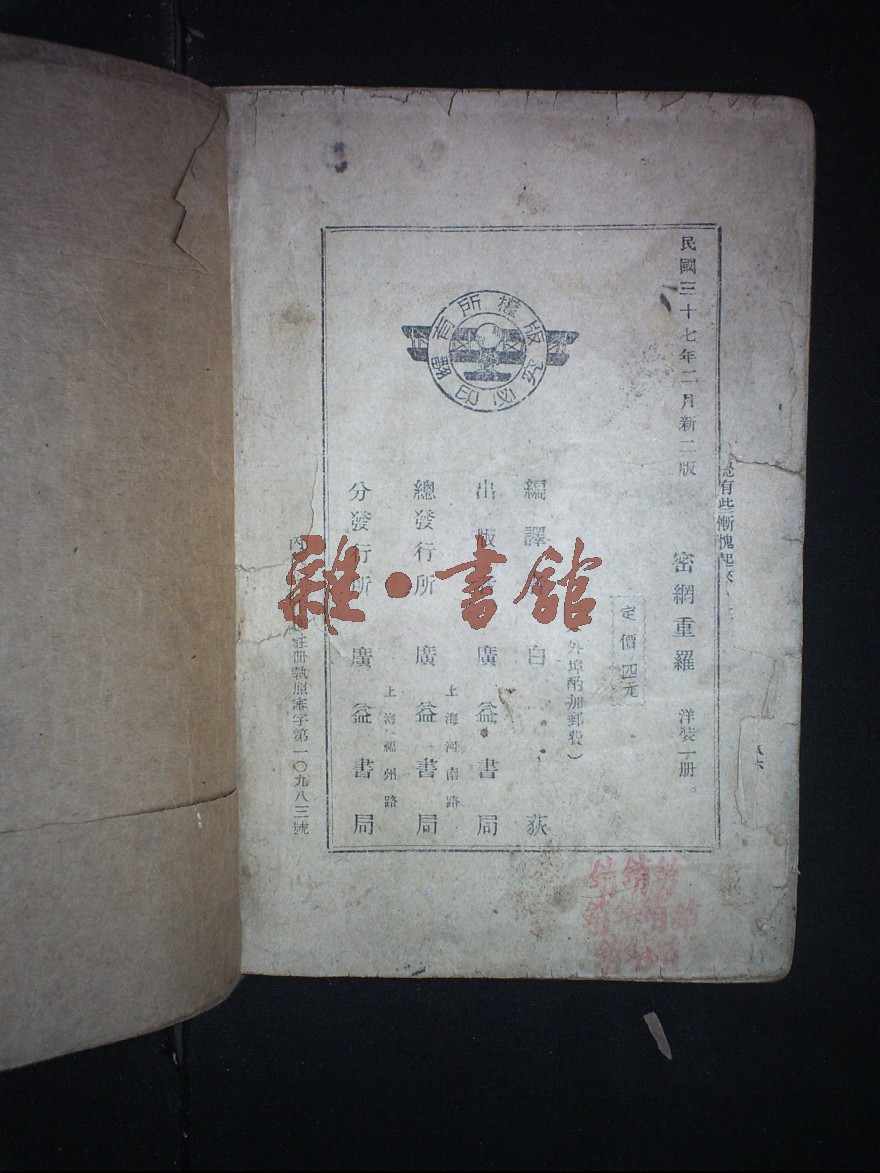 民國三十七年二月新二版
密網重羅 洋裝一册。
定價四元
外埠酌加郵費）
編譯 白荻
出版 廣益書局
上海河南路
總發行所 廣益書局
上海福州路
分發行所 廣益書局
內 註冊執照審字第一〇九八三號
版權所有
翻印必究
是有些慚愧起來
雜·書館